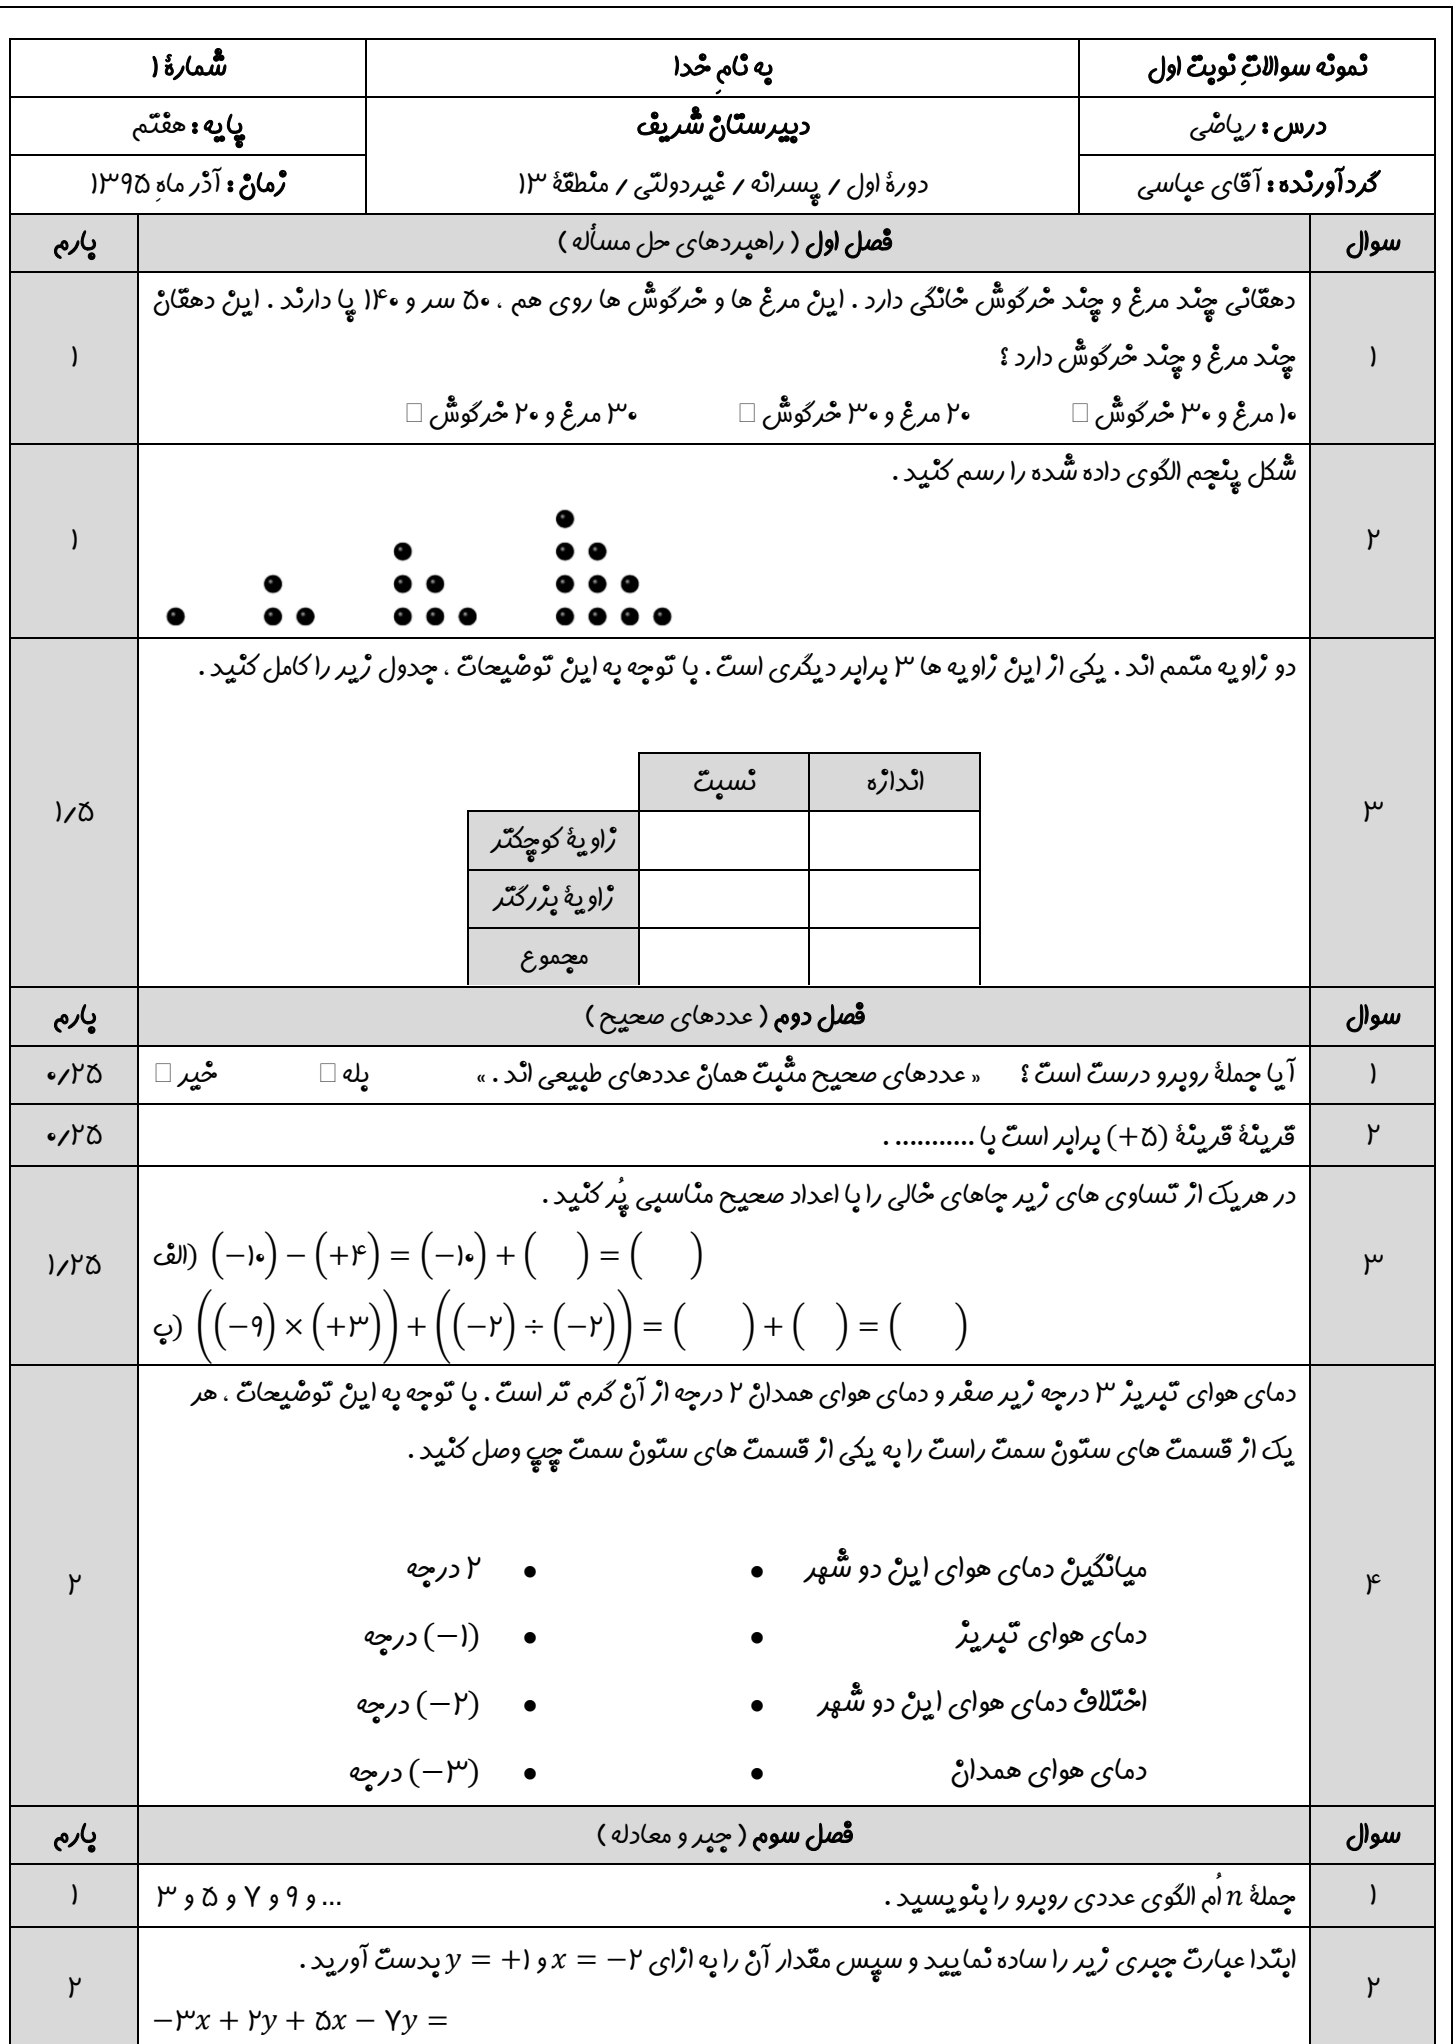 نمونه سوالاتِ نوبت اول
به نامِ خدا
شمارهٔ ۱
درس : ریاضی
دبیرستان شریف
پایه : هفتم
گردآورنده : آقای عباسی
دورهٔ اول / پسرانه / غیردولتی / منطقهٔ ۱۳
زمان : آذر ماهِ ۱۳۹۵
سوال
فصل اول ( راهبردهای حل مسأله )
بارم
۱
دهقانی چند مرغ و چند خرگوش خانگی دارد . این مرغ ها و خرگوش ها روی هم ، ۵۰ سر و ۱۴۰ پا دارند . این دهقان
چند مرغ و چند خرگوش دارد ؟
۱۰ مرغ و ۳۰ خرگوش □ ۲۰ مرغ و ۳۰ خرگوش □ ۳۰ مرغ و ۲۰ خرگوش □
۱
۲
شکل پنجم الگوی داده شده را رسم کنید .
۱
۳
دو زاویه متمم اند . یکی از این زاویه ها ۳ برابر دیگری است . با توجه به این توضیحات ، جدول زیر را کامل کنید .
اندازه
نسبت
زاویهٔ کوچکتر
زاویهٔ بزرگتر
مجموع
۱/۵
سوال
فصل دوم ( عددهای صحیح )
بارم
۱
آیا جملهٔ روبرو درست است ؟ « عددهای صحیح مثبت همان عددهای طبیعی اند . » بله □ خیر □
۰/۲۵
۲
قرینهٔ قرینهٔ (+۵) برابر است با ........... .
۰/۲۵
۳
در هریک از تساوی های زیر جاهای خالی را با اعداد صحیح مناسبی پُر کنید .
الف) (−۱۰) − (+۴) = (−۱۰) + ( ) = ( )
ب) ((−۹) × (+۳)) + ((−۲) ÷ (−۲)) = ( ) + ( ) = ( )
۱/۲۵
۴
دمای هوای تبریز ۳ درجه زیر صفر و دمای هوای همدان ۲ درجه از آن گرم تر است . با توجه به این توضیحات ، هر
یک از قسمت های ستون سمت راست را به یکی از قسمت های ستون سمت چپ وصل کنید .
میانگین دمای هوای این دو شهر • • ۲ درجه
دمای هوای تبریز • • (−۱) درجه
اختلاف دمای هوای این دو شهر • • (−۲) درجه
دمای هوای همدان • • (−۳) درجه
۲
سوال
فصل سوم ( جبر و معادله )
بارم
۱
جملهٔ n اُم الگوی عددی روبرو را بنویسید . ۳ و ۵ و ۷ و ۹ و ...
۱
۲
ابتدا عبارت جبری زیر را ساده نمایید و سپس مقدار آن را به ازای x = −۲ و y = +۱ بدست آورید .
−۳x + ۲y + ۵x − ۷y =
۲